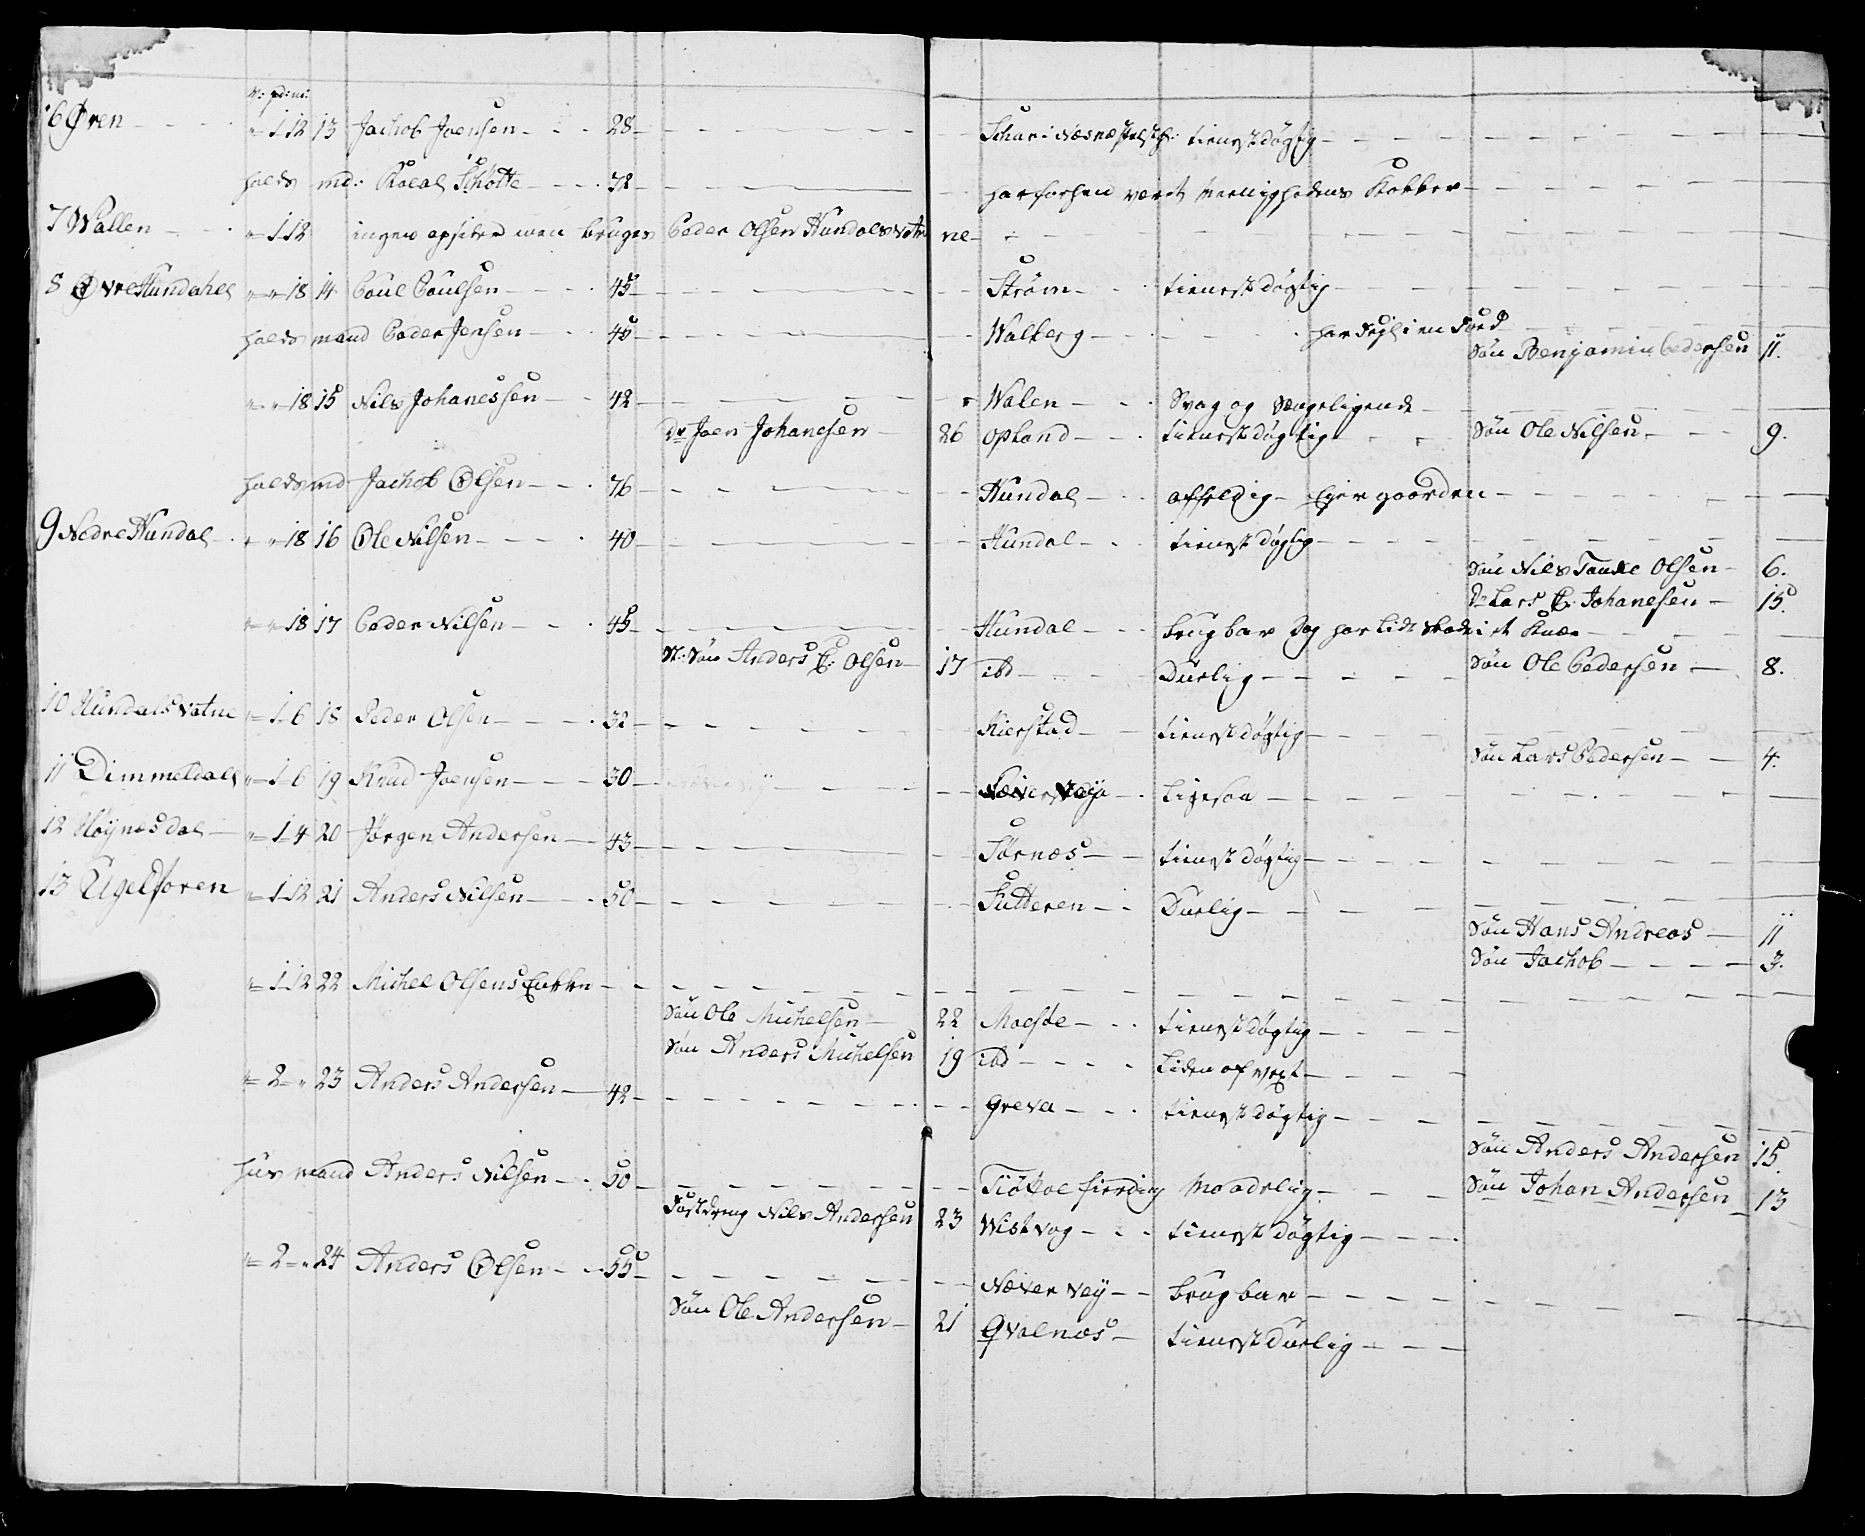 W: pd: m:
6 Øren - - - " 1 12 13 Jachob Joensen - - - 28 - - - - Schar i Næsne Prestegl: tienestdøgtig - - -
halds md: Povel Schøtte - - - 72 - - - har forhen været Menighedens Klokker - - -
7 Wallen - - " 1 12 ingen opsider men bruges Peder Olsen Hundals vatne - - -
8 Øvre Hundahl " " 18 14 Poul Poulsen - - - 45 - - - Strøm - - tienestdøgtig - - -
halds mand Peder Jensen - - 45 - - - Walberg - - - har Fejl i en Foed
Søn Benjamin Pedersen 11.
" " 18 15 Nils Johanessen - - 42 - - - Walen - - Svag og Sængeligende - - -
Dr Joen Johanesen - 26 Opland - - tienestdøgtig - - Søn Ole Nilsen - - 9.
halds md Jachob Olsen - - 76 - - - Hundal - - affeldig - Ejer gaarden - - -
9 Nedre Hundal - " " 18 16 Ole Nilsen - - - 40 - - - Hundal - - tienestdøgtig - - -
Søn Nils Tande Olsen - 6.
Dr Lars E: Johanesen - 15.
" " 18 17 Peder Nilsen - - 45 - - - Hundal - - brugbar dog har lidt Skade i et Knæe - - -
St: Søn Anders E: Olsen - 17 ibd - - - Durlig - - - Søn Ole Pedersen - 8.
10 Hundals vatne " 1 6 18 Peder Olsen - - - 32 - - - Kierstad - - tienestdøgtig - - -
Søn Lars Pedersen - - 4.
11 Dimmeldal " 1 6 19 Knud Joensen - - - 30 - - - Næver Vejja - ligesaa - - -
12 Høynesdal - " 1 4 20 Jørgen Andersen - 43 - - - Sørnæs - - tienestdøgtig - - -
13 Ugelforen " 1 12 21 Anders Nilsen - - 50 - - - Futteren - - Durlig - - -
Søn Hans Andreas - 11
Søn Jachob - - - 3.
" 1 12 22 Michel Olsens Enkke - - -
Søn Ole Michelsen - 22 Moesøe - - tienestdøgtig - - -
Søn Anders Michelsen 19 ibd - - - Liden af vext - - -
" 2 " 23 Anders Andersen - 42 - - - Greva - - tienestdøgtig - - -
Søn Anders Andersen 15.
huus mand Anders Nilsen - - 50 - - - Tiøtøe fierding Maadelig - - - Søn Johan Andersen 13
Fosterdreng Nils Andersen 23 Wistvog - - tienestdøgtig - - -
" 2 " 24 Anders Olsen - - 55 - - - Næver Vey - - brugbar - - -
Søn Ole Andersen - 21 Qvalnæs - tienestDurlig - - -